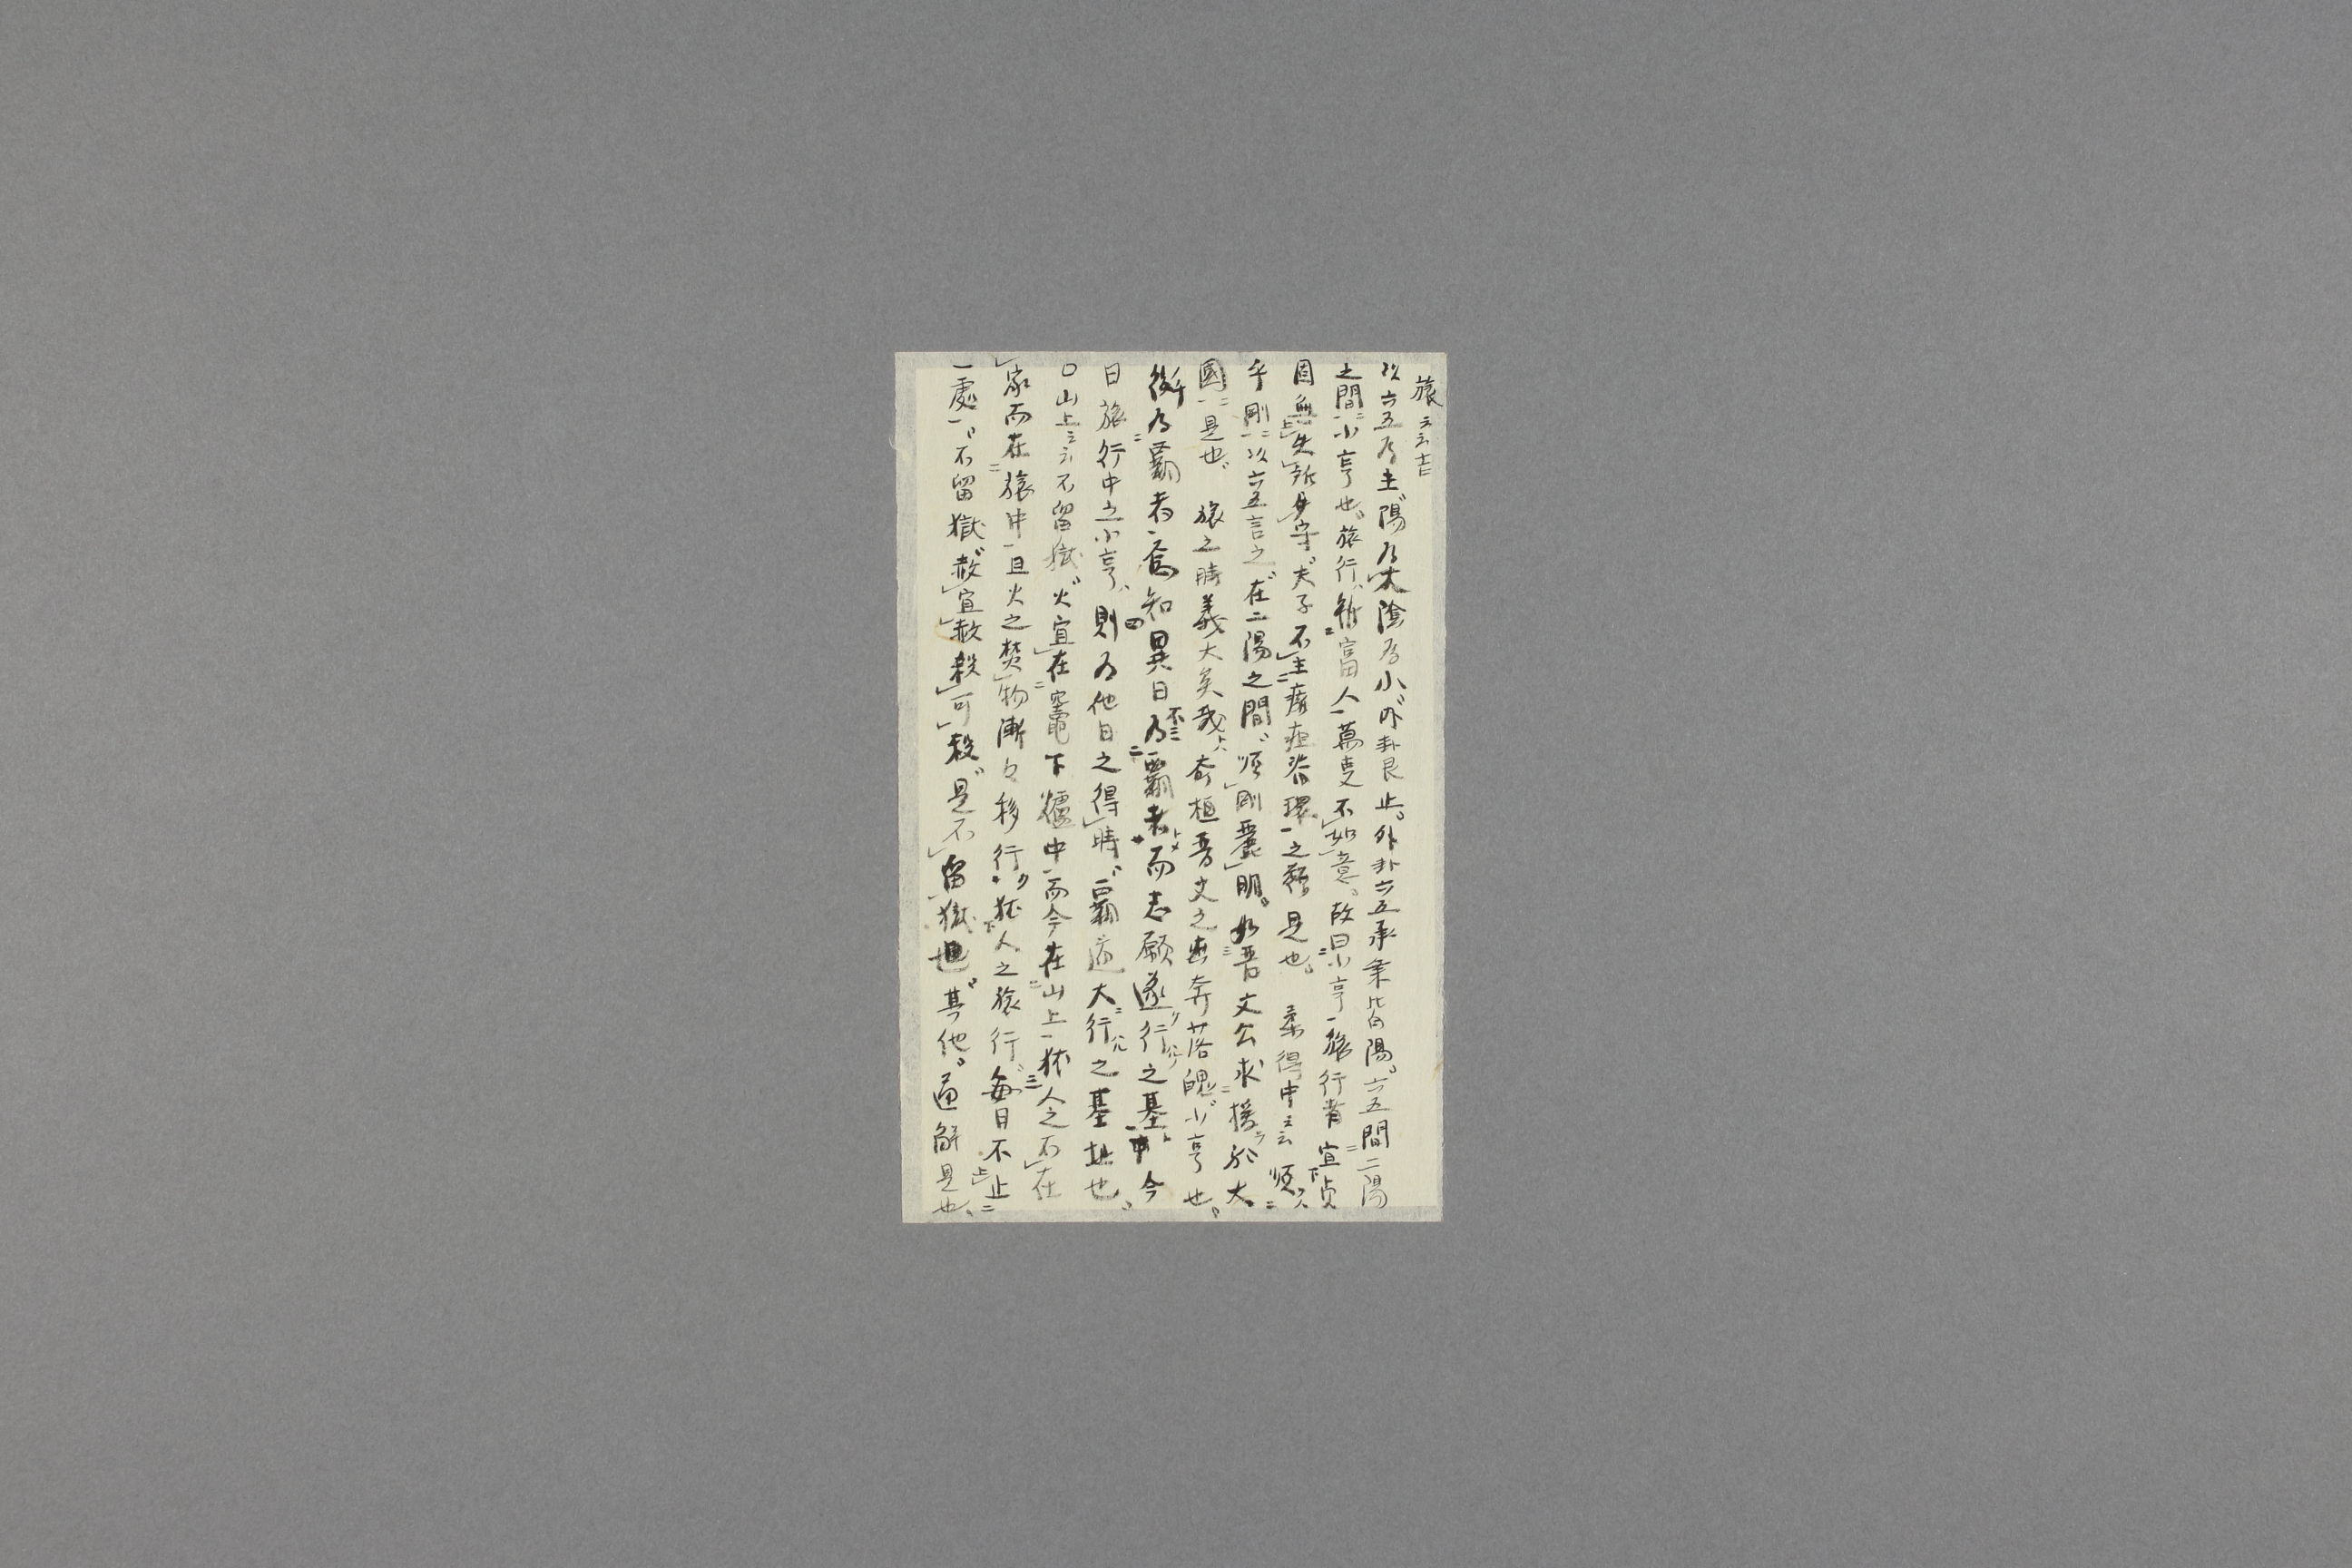 旅云云吉
以六五為主陽為大陰為小內卦艮止外卦六五承乘皆陽六五間二陽
之間小亨也旅行雖富人萬事不如意故曰小亨旅行者宜貞
固無失所身守夫子不主癰疽瘠環之類是也　柔得中云云順
乎剛以六五言之在二陽之間順剛麗明如晉文公求援於大
國是也　旅之時義大矣哉齊桓晉文之出奔落魄小亨也
後為覇者焉知異日為覇者而志願遂行之基今
日旅行中之小亨則為他日之得時覇道大行之基址也
○山上云云不留獄火宜在竈下爐中而今在山上猶人之不在
家而在旅中且火之焚物漸々移行猶人之旅行每日不止
一處不留獄赦宜赦殺可殺是不留獄也其他通解是也